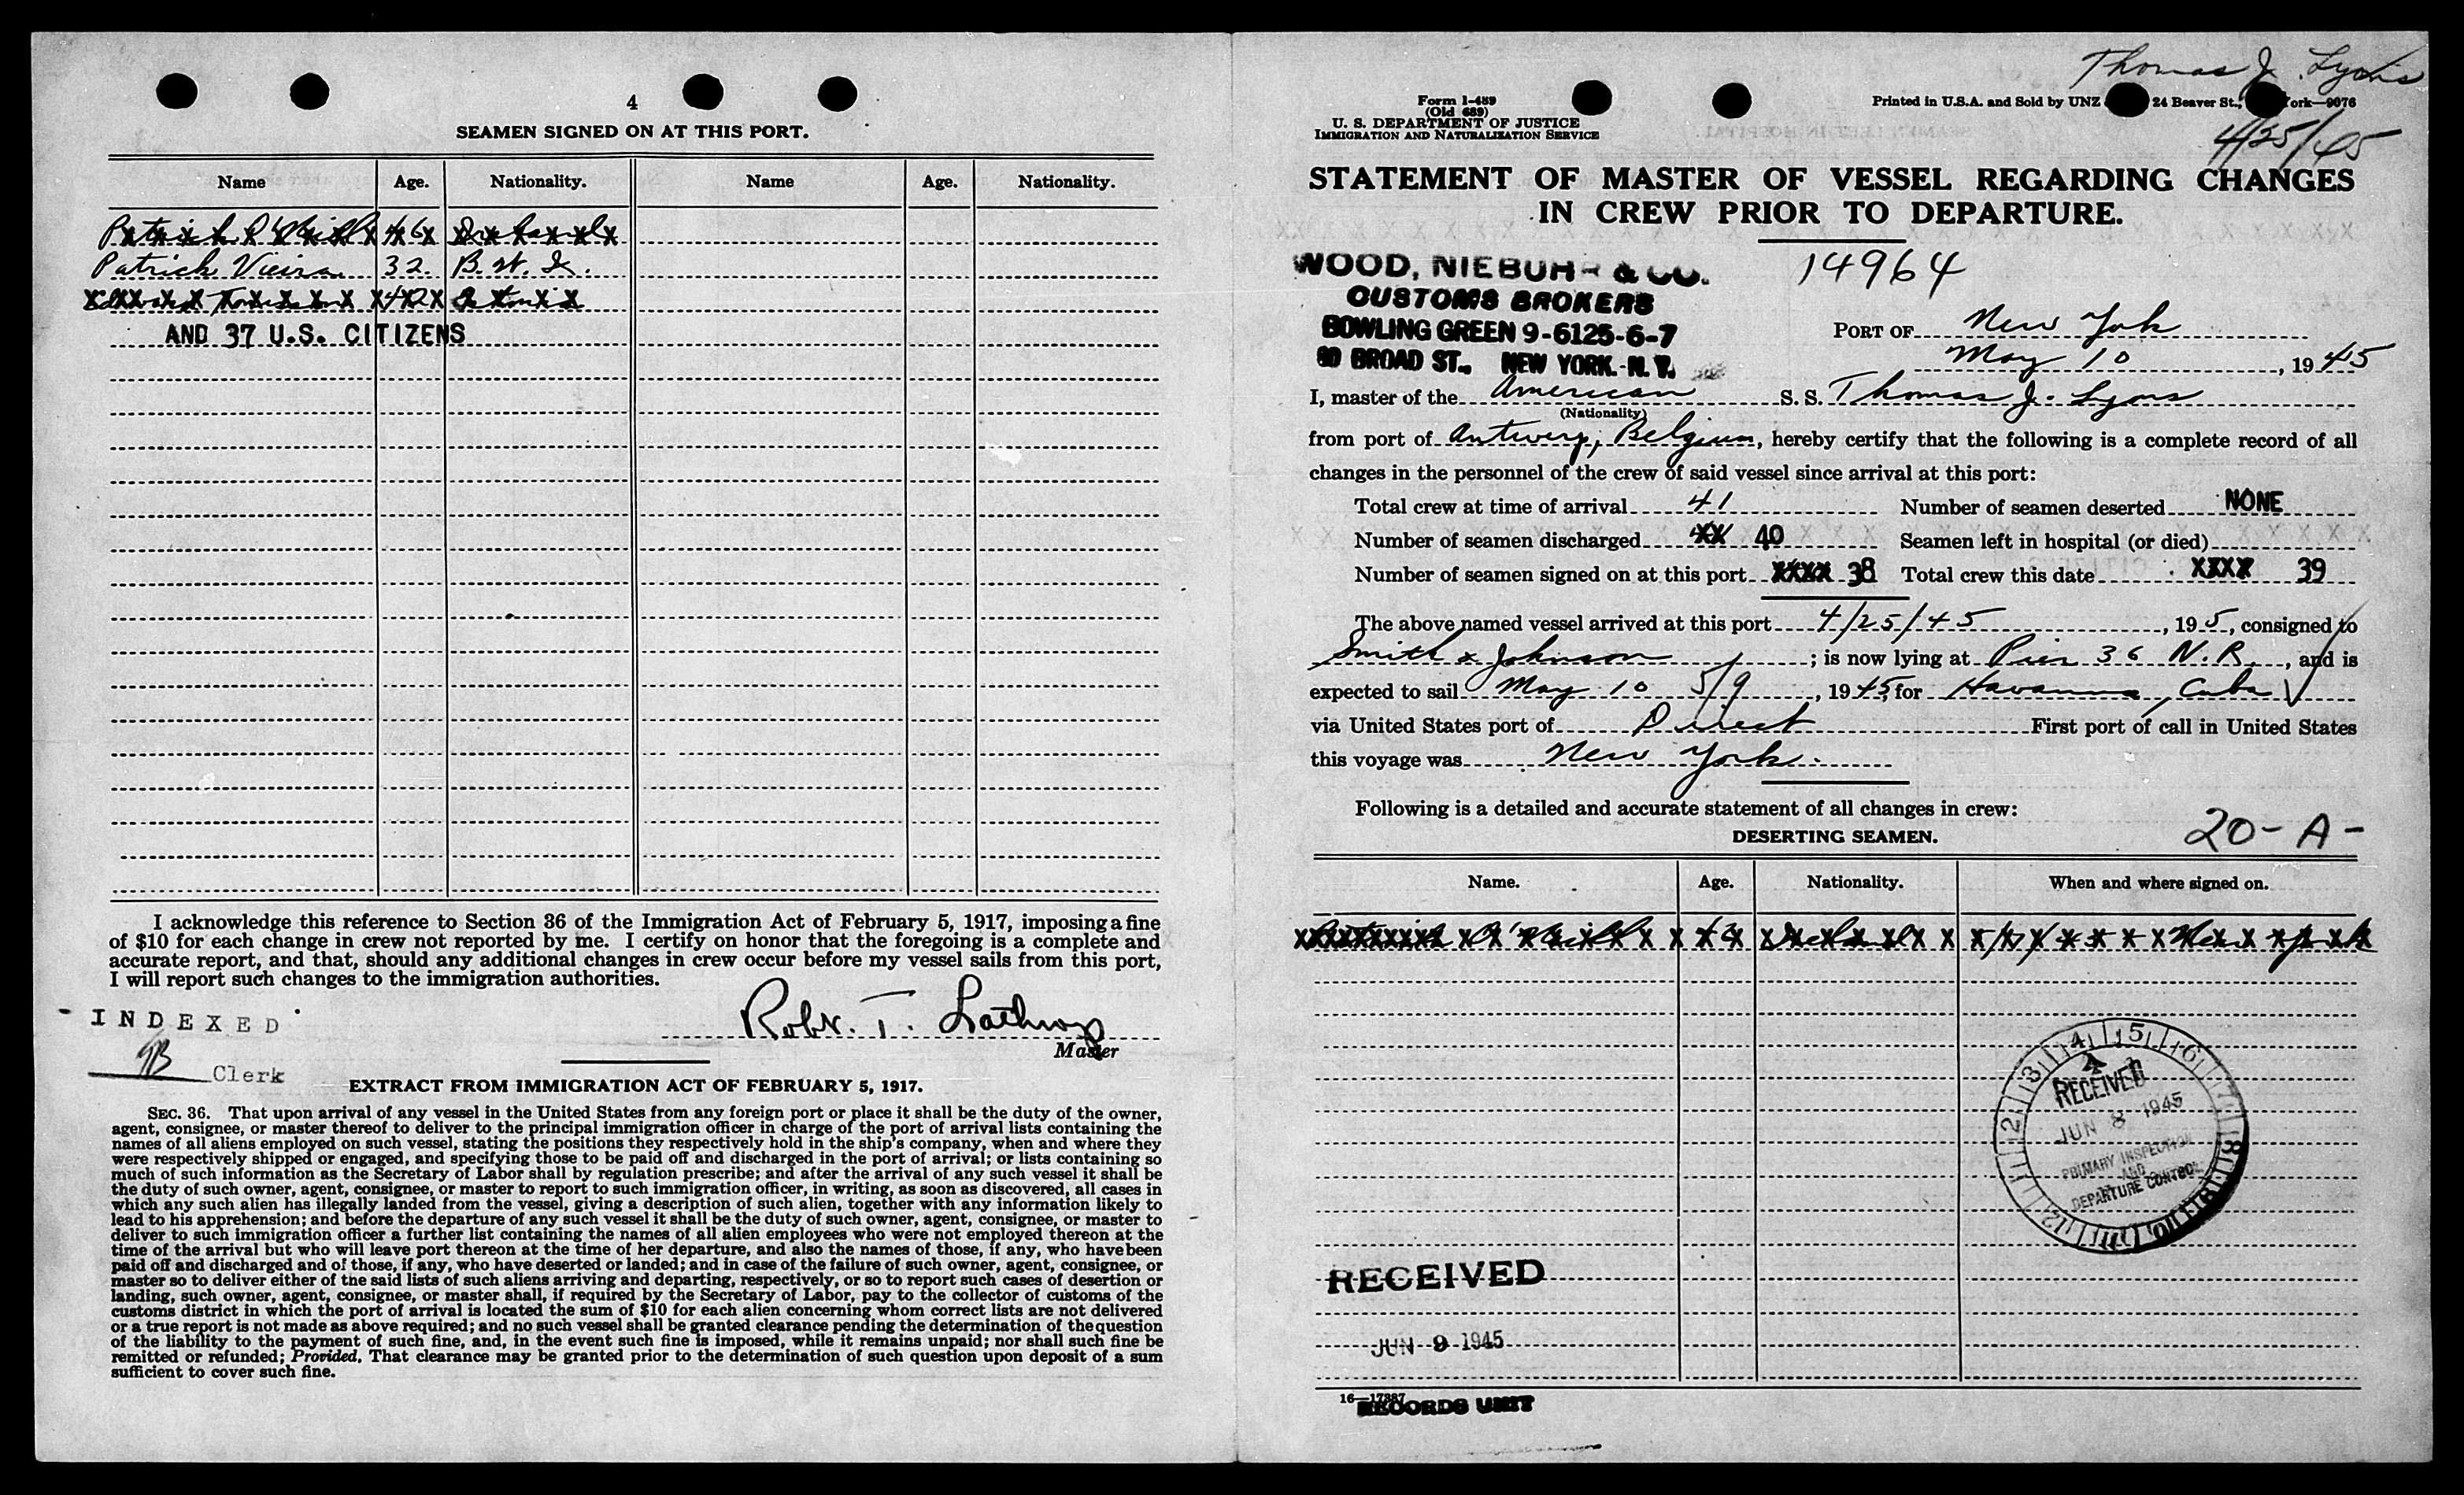 4
SEAMEN SIGNED ON AT THIS PORT.
Name Age. Nationality. Name Age. Nationality.
Patrick O'Neill 46 Ireland
Patrick Vieira 32 B. W. I.
Edward 42 Estonia
AND 37 U.S. CITIZENS
I acknowledge this reference to Section 36 of the Immigration Act of February 5, 1917, imposing a fine
of $10 for each change in crew not reported by me. I certify on honor that the foregoing is a complete and
accurate report, and that, should any additional changes in crew occur before my vessel sails from this port,
I will report such changes to the immigration authorities.
INDEXED
Robt. T. Lathrop
Master
Clerk
EXTRACT FROM IMMIGRATION ACT OF FEBRUARY 5, 1917.
SEC. 36. That upon arrival of any vessel in the United States from any foreign port or place it shall be the duty of the owner,
agent, consignee, or master thereof to deliver to the principal immigration officer in charge of the port of arrival lists containing the
names of all aliens employed on such vessel, stating the positions they respectively hold in the ship's company, when and where they
were respectively shipped or engaged, and specifying those to be paid off and discharged in the port of arrival; or lists containing so
much of such information as the Secretary of Labor shall by regulation prescribe; and after the arrival of any such vessel it shall be
the duty of such owner, agent, consignee, or master to report to such immigration officer, in writing, as soon as discovered, all cases in
which any such alien has illegally landed from the vessel, giving a description of such alien, together with any information likely to
lead to his apprehension; and before the departure of any such vessel it shall be the duty of such owner, agent, consignee, or master to
deliver to such immigration officer a further list containing the names of all alien employees who were not employed thereon at the
time of the arrival but who will leave port thereon at the time of her departure, and also the names of those, if any, who have been
paid off and discharged and of those, if any, who have deserted or landed; and in case of the failure of such owner, agent, consignee, or
master so to deliver either of the said lists of such aliens arriving and departing, respectively, or so to report such cases of desertion or
landing, such owner, agent, consignee, or master shall, if required by the Secretary of Labor, pay to the collector of customs of the
customs district in which the port of arrival is located the sum of $10 for each alien concerning whom correct lists are not delivered
or a true report is not made as above required; and no such vessel shall be granted clearance pending the determination of the question
of the liability to the payment of such fine, and, in the event such fine is imposed, while it remains unpaid; nor shall such fine be
remitted or refunded; Provided, That clearance may be granted prior to the determination of such question upon deposit of a sum
sufficient to cover such fine.
Thomas J. Lyons
Form I-489
(Old 689)
U. S. DEPARTMENT OF JUSTICE
IMMIGRATION AND NATURALIZATION SERVICE
Printed in U.S.A. and Sold by UNZ 24 Beaver St., ork—9076
4/25/45
STATEMENT OF MASTER OF VESSEL REGARDING CHANGES
IN CREW PRIOR TO DEPARTURE.
WOOD, NIEBUHR & CO.
CUSTOMS BROKERS
BOWLING GREEN 9-6125-6-7
80 BROAD ST., NEW YORK. N. Y.
14964
PORT OF New York
May 10, 1945
I, master of the American S. S. Thomas J. Lyons
(Nationality)
from port of Antwerp, Belgium, hereby certify that the following is a complete record of all
changes in the personnel of the crew of said vessel since arrival at this port:
Total crew at time of arrival 41 Number of seamen deserted NONE
Number of seamen discharged XX 40 Seamen left in hospital (or died)
Number of seamen signed on at this port XXXX 38 Total crew this date XXXX 39
The above named vessel arrived at this port 4/25/45, 195, consigned to
Smith & Johnson; is now lying at Pier 36 N.R., and is
expected to sail May 10 5/9, 1945, for Havanna, Cuba
via United States port of Direct First port of call in United States
this voyage was New York.
Following is a detailed and accurate statement of all changes in crew:
DESERTING SEAMEN.
20-A-
Name. Age. Nationality. When and where signed on.
Patrick O'Neill Ireland New York
RECEIVED
JUN 8 1945
PRIMARY INSPECTION
AND
DEPARTURE CONTROL
RECEIVED
JUN 9 1945
16—17387
RECORDS UNIT